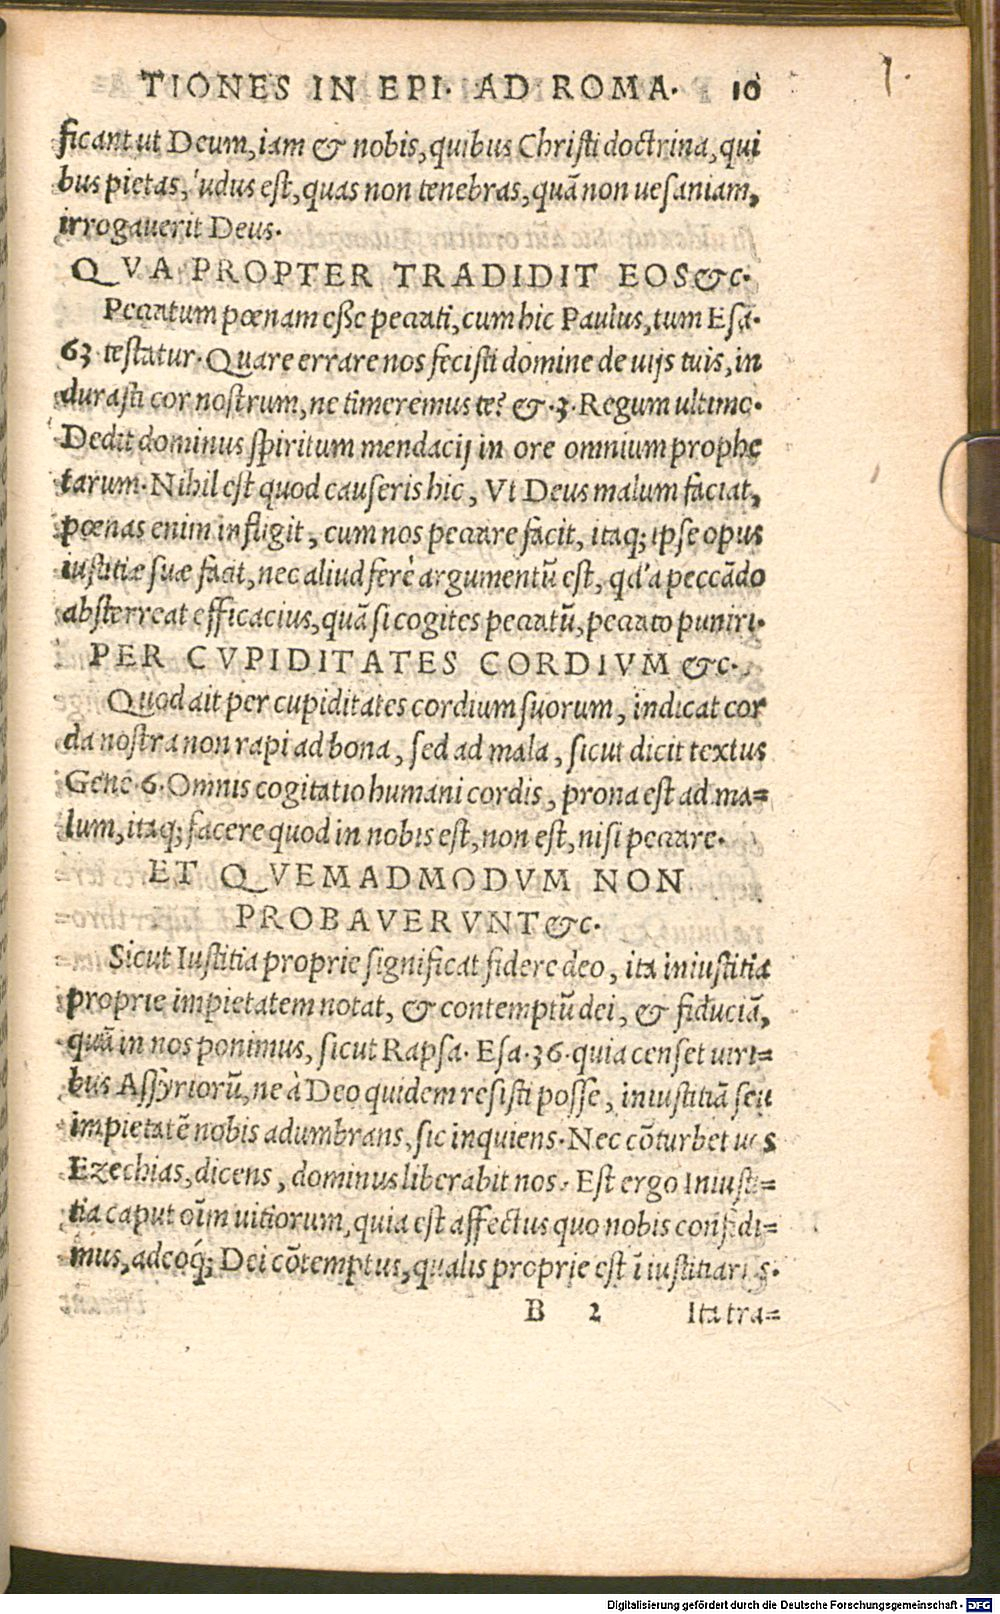 TIONES IN EPI. AD ROMA. 10
1.
ficant ut Deum, iam & nobis, quibus Christi doctrina, qui
bus pietas, ludus est, quas non tenebras, quã non uesaniam,
irrogauerit Deus.
QVA PROPTER TRADIDIT EOS &c.
Peccatum pœnam esse peccati, cum hic Paulus, tum Esa.
63 testatur. Quare errare nos fecisti domine de uijs tuis, in
durasti cor nostrum, ne timeremus te? & .3. Regum ultimo.
Dedit dominus spiritum mendacij in ore omnium prophe
tarum. Nihil est quod causeris hic, Vt Deus malum faciat,
pœnas enim infligit, cum nos peccare facit, itaq; ipse opus
iustitiæ suæ facit, nec aliud ferè argumentũ est, qd' a peccãdo
absterreat efficacius, quã si cogites peccatũ, peccato puniri.
PER CVPIDITATES CORDIVM &c.
Quod ait per cupiditates cordium suorum, indicat cor
da nostra non rapi ad bona, sed ad mala, sicut dicit textus
Gene. 6. Omnis cogitatio humani cordis, prona est ad ma=
lum, itaq; facere quod in nobis est, non est, nisi peccare.
ET QVEMADMODVM NON
PROBAVERVNT &c.
Sicut Iustitia proprie significat fidere deo, ita iniustitia
proprie impietatem notat, & contemptũ dei, & fiduciã,
quã in nos ponimus, sicut Rapsa. Esa. 36. quia censet uiri=
bus Assyriorũ, ne à Deo quidem resisti posse, iniustitiã seu
impietatẽ nobis adumbrans, sic inquiens. Nec cõturbet uos
Ezechias, dicens, dominus liberabit nos. Est ergo Iniusti=
tia caput oĩm uitiorum, quia est affectus quo nobis confidi=
mus, adeoq́; Dei cõtemptus, qualis proprie est ĩ iustitiarijs.
B 2 Ita tra=
Digitalisierung gefördert durch die Deutsche Forschungsgemeinschaft - DFG